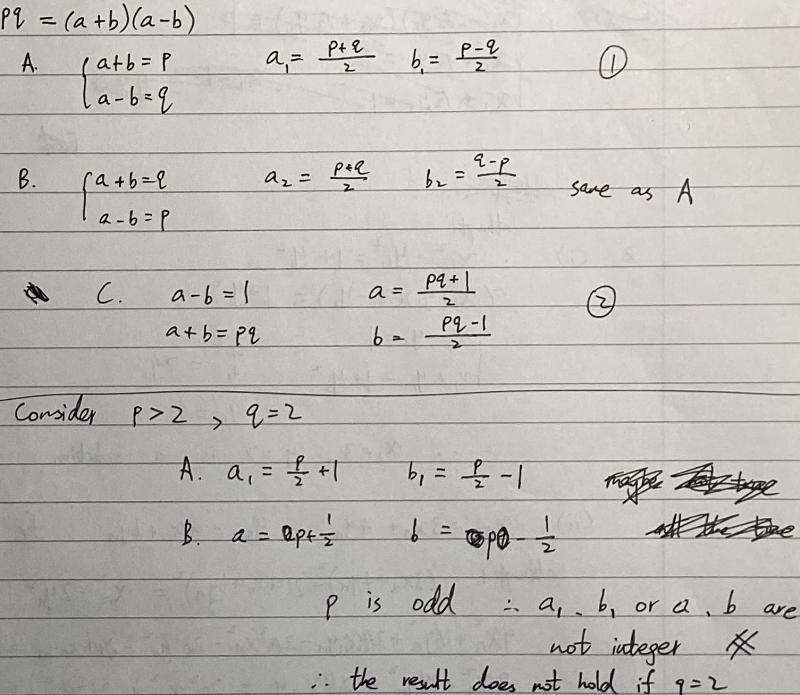 pq = (a+b)(a-b)
A. { a+b = p   a₁ = (p+q)/2   b₁ = (p-q)/2   ①
a-b = q
B. { a+b = q   a₂ = (p+q)/2   b₂ = (q-p)/2   same as A
a-b = p
C. a-b = 1   a = (pq+1)/2   ②
a+b = pq   b = (pq-1)/2
Consider p>2, q=2
A. a₁ = p/2 + 1   b₁ = p/2 - 1
B. a = p + 1/2   b = p - 1/2
p is odd ∴ a₁, b₁ or a, b are
not integer
∴ the result does not hold if q=2